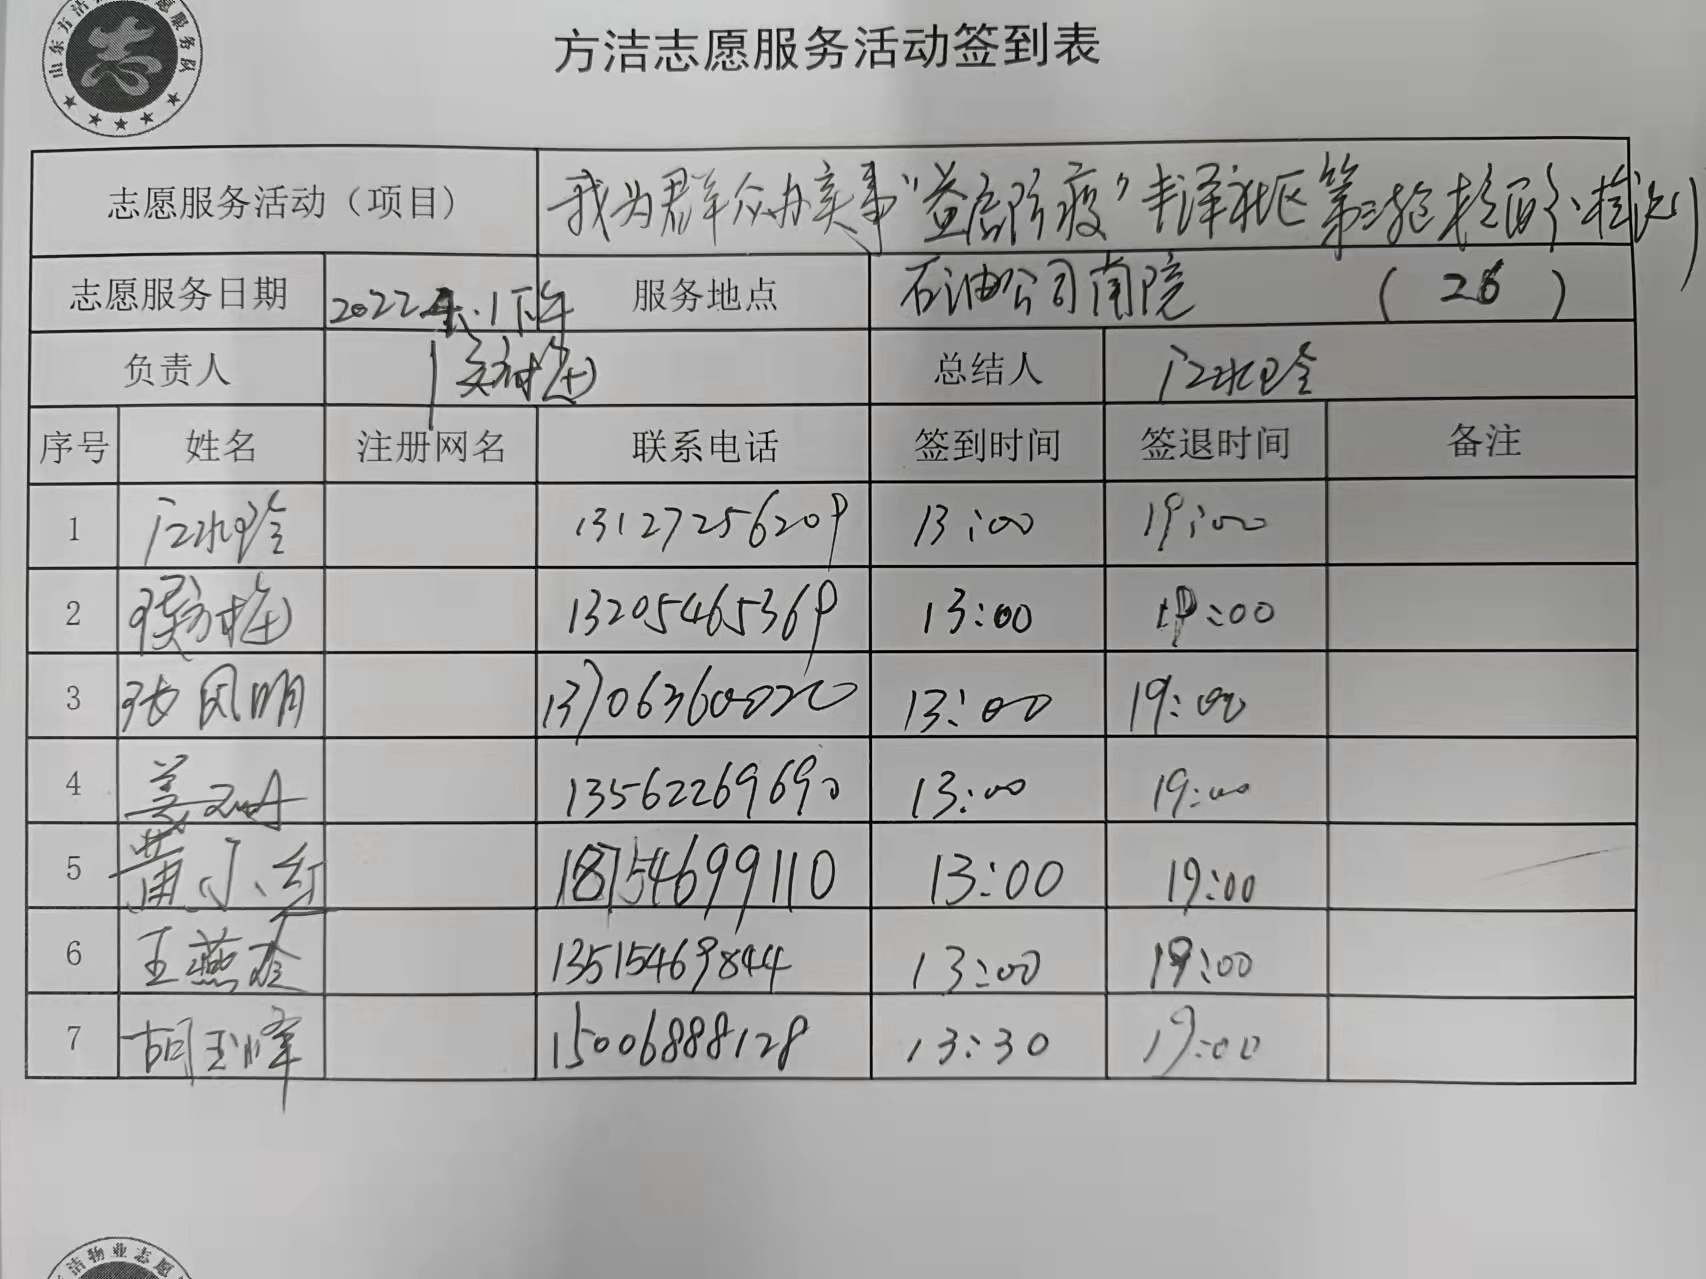 山东方洁 愿服务队
方洁志愿服务活动签到表
志愿服务活动（项目） 我为群众办实事"益启防疫"丰泽社区第三轮核酸检测
志愿服务日期 2022 .1下午 服务地点 石油公司南院 （26）
负责人 总结人 江水玲
序号 姓名 注册网名 联系电话 签到时间 签退时间 备注
1 江水玲 13127256209 13:00 19:00
2 13205465369 13:00 19:00
3 张凤明 13:00 19:00
4 13562269690 13:00 19:00
5 黄小红 18754699110 13:00 19:00
6 王燕 13515469844 13:00 19:00
7 胡玉峰 15006888128 13:30 19:00
洁物业志愿